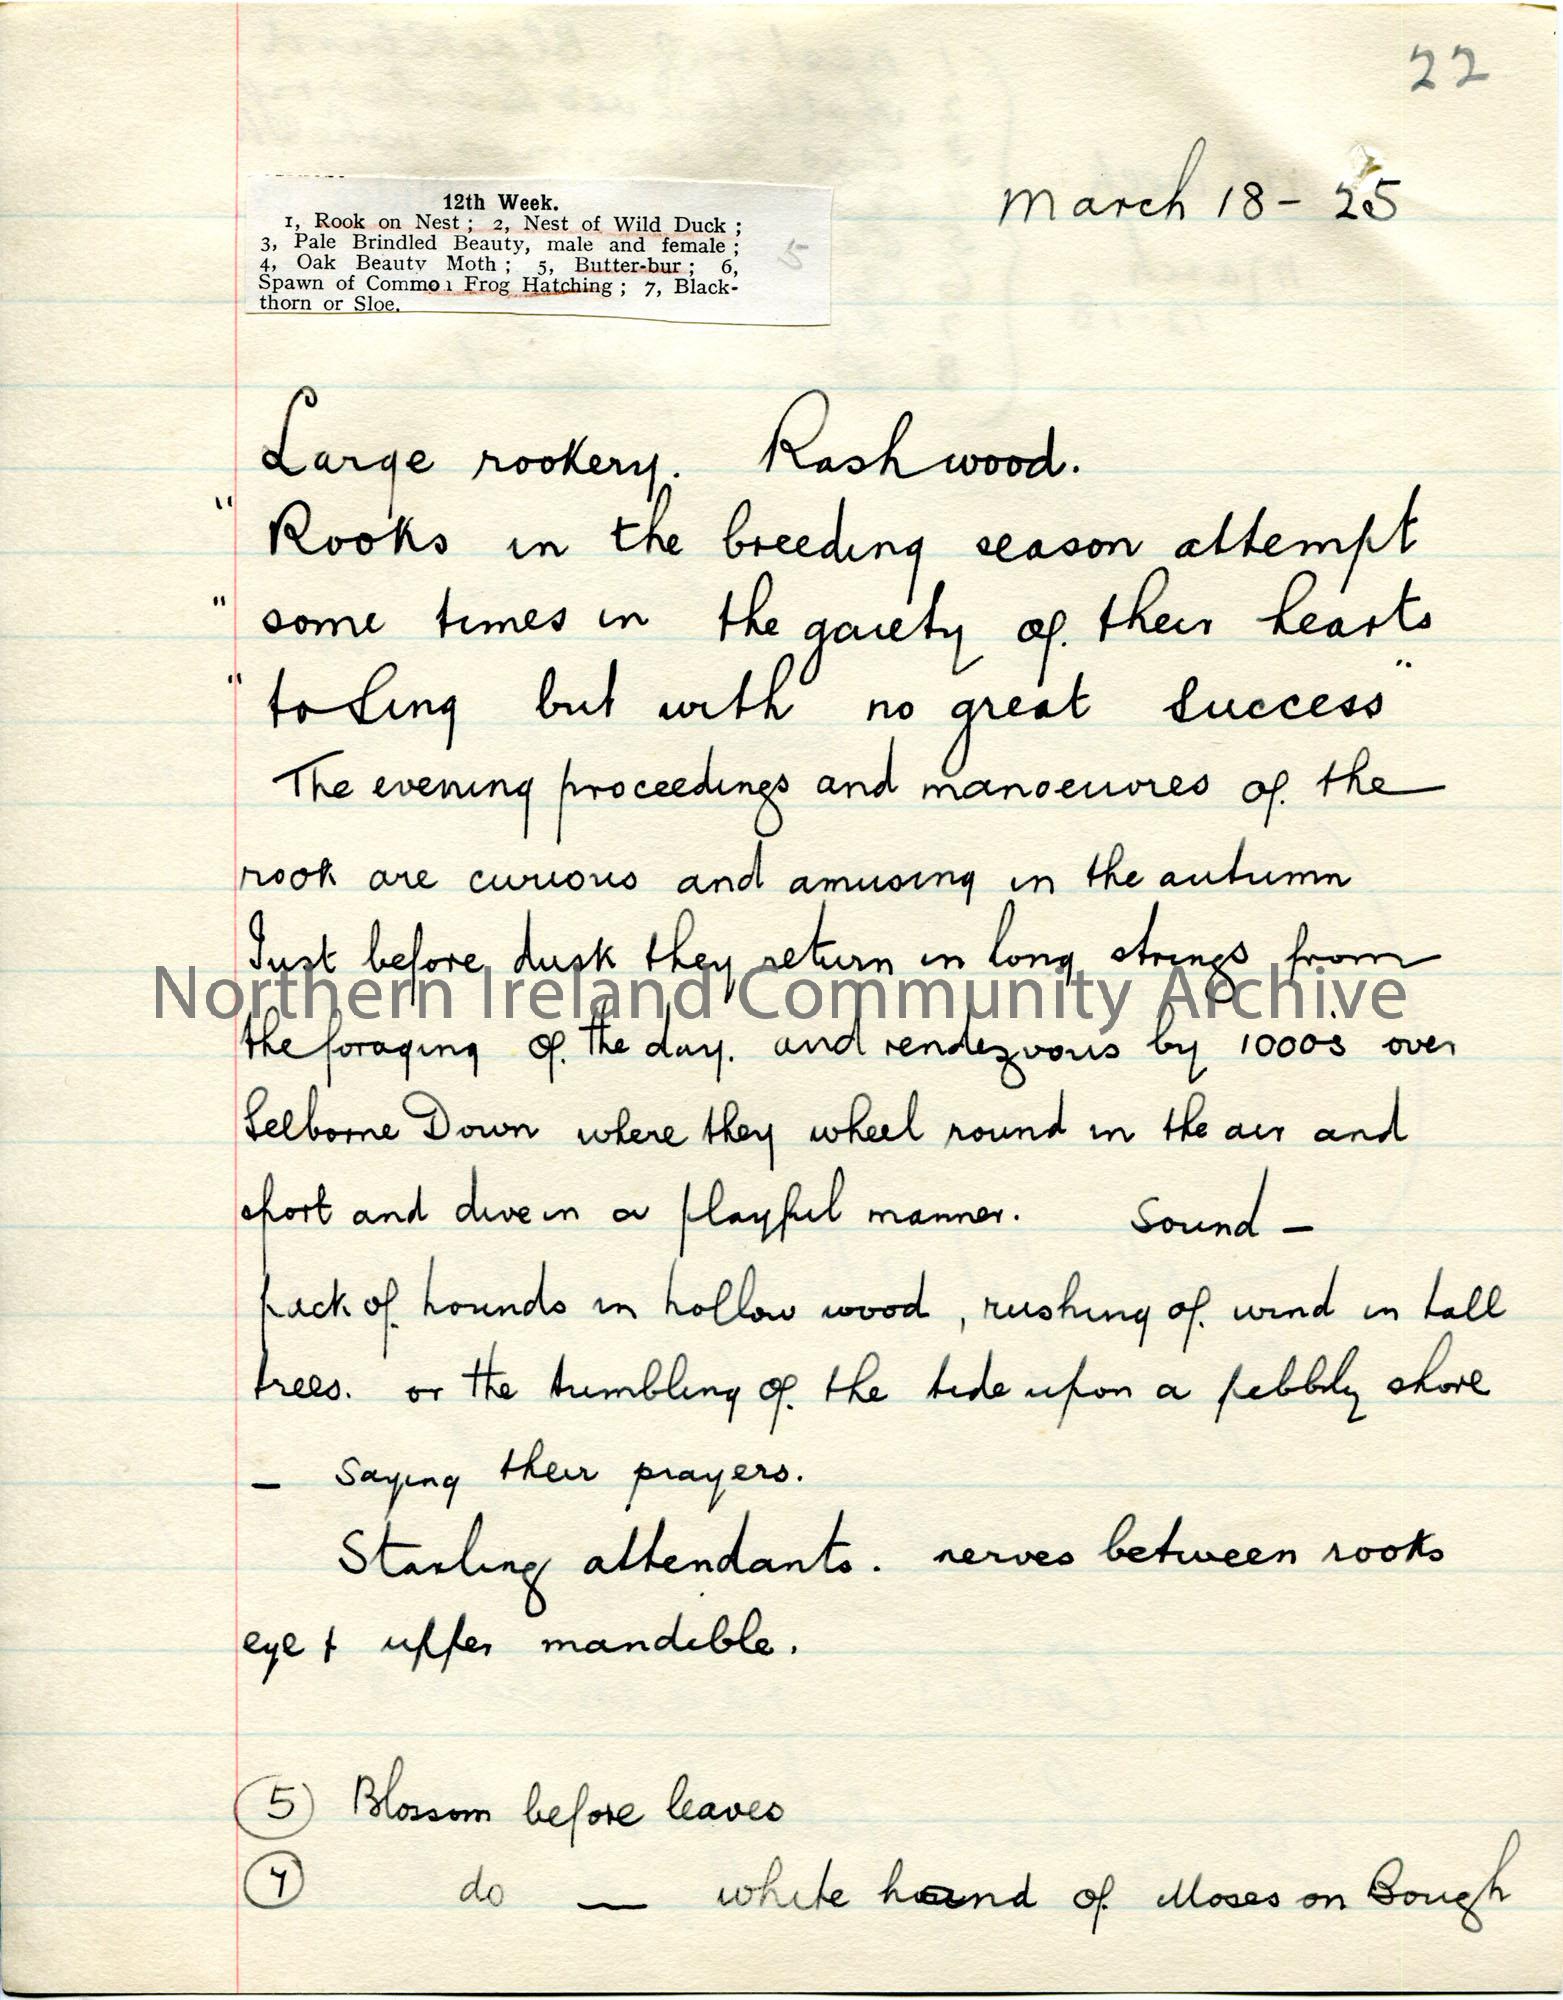 22
March 18 - 25
12th Week.
1, Rook on Nest; 2, Nest of Wild Duck;
3, Pale Brindled Beauty, male and female;
4, Oak Beauty Moth; 5, Butter-bur; 6,
Spawn of Common Frog Hatching; 7, Black-
thorn or Sloe.
5
Large rookery. Rashwood.
" Rooks in the breeding season attempt
" some times in the gaiety of their hearts
" to Sing but with no great Success"
The evening proceedings and manoeuvres of the
rook are curious and amusing in the autumn
Just before dusk they return in long strings from
Northern Ireland Community Archive
the foraging of the day. and rendezvous by 1000s over
Selborne Down where they wheel round in the air and
sport and dive in a playful manner. Sound —
pack of hounds in hollow wood, rushing of wind in tall
trees. or the tumbling of the tide upon a pebbly shore
— Saying their prayers.
Starling attendants. nerves between rooks
eye + upper mandible.
5 Blossom before leaves
7 do — white hand of Moses on Bough